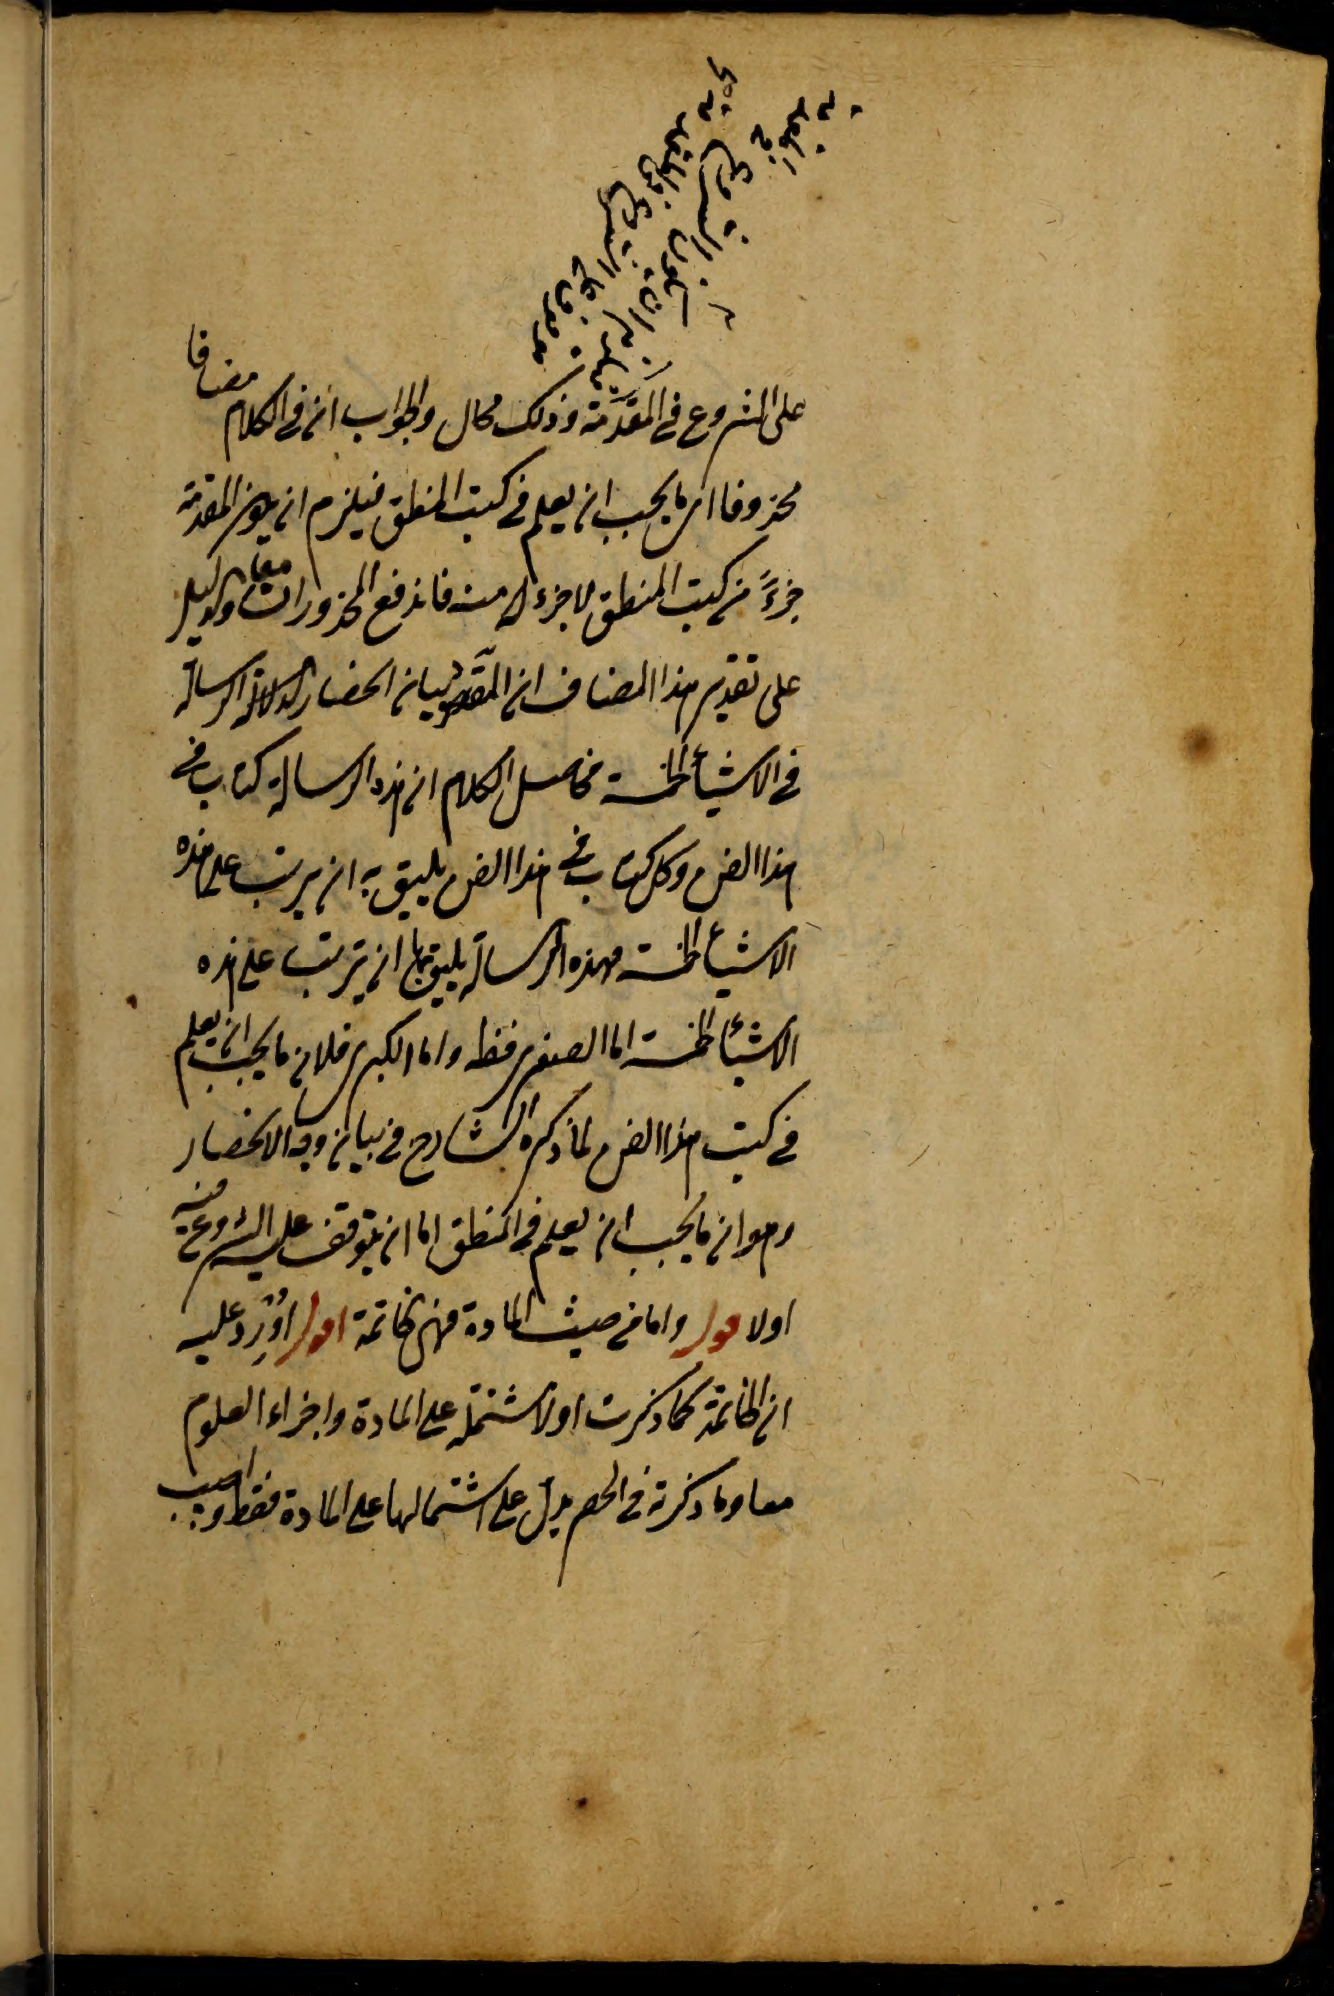 على الشروع في المقدمة وذلك محال والجواب ان في الكلام مضافا
محذوفا اى ما يجب ان يعلم في كتب المنطق فيلزم ان يكون المقدمة
جزءً من كتب المنطق لا جزء له منه فاندفع المحذوران معا والدليل
على تقدير هذا المضاف ان المقصود بيان انحصار الرسالة
في الاشياء الخمسة فحاصل الكلام ان هذه الرسالة كتاب في
هذا الفن وكل كتاب في هذا الفن يليق به ان يرتب على هذه
الاشياء الخمسة فهذه الرسالة يليق بها ان يترتب على هذه
الاشياء الخمسة اما الصغرى فظ واما الكبرى فلان ما يجب ان يعلم
في كتب هذا الفن لما ذكره الشارح في بيان وجه الانحصار
وهو ان ما يجب ان يعلم في المنطق اما ان يتوقف عليه الشروع فيه
اولا قوله واما من حيث المادة فهى الخاتمة اقول اُوْرِدَ عليه
ان الخاتمة كما ذكرت اولا مشتملة على المادة واجزاء العلوم
معا وما ذكرته في الحصر يدل على اشتمالها على المادة فقط واجيب